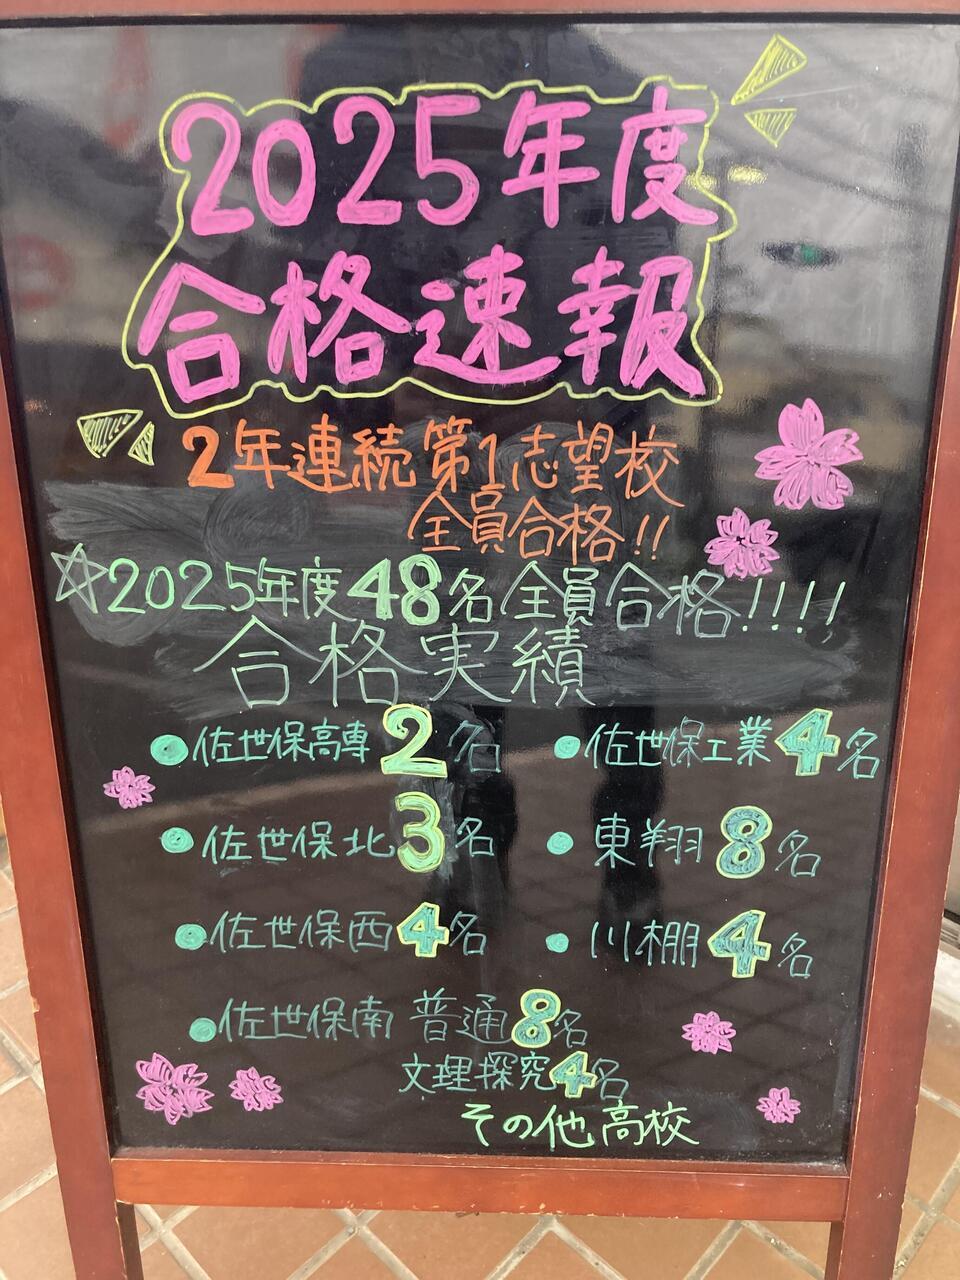 2025年度
合格速報
2年連続第1志望校
全員合格!!
☆2025年度48名全員合格!!!!
合格実績
●佐世保高専2名 ●佐世保工業4名
●佐世保北3名 ●東翔8名
●佐世保西4名 ●川棚4名
●佐世保南 普通8名
文理探究4名
その他高校